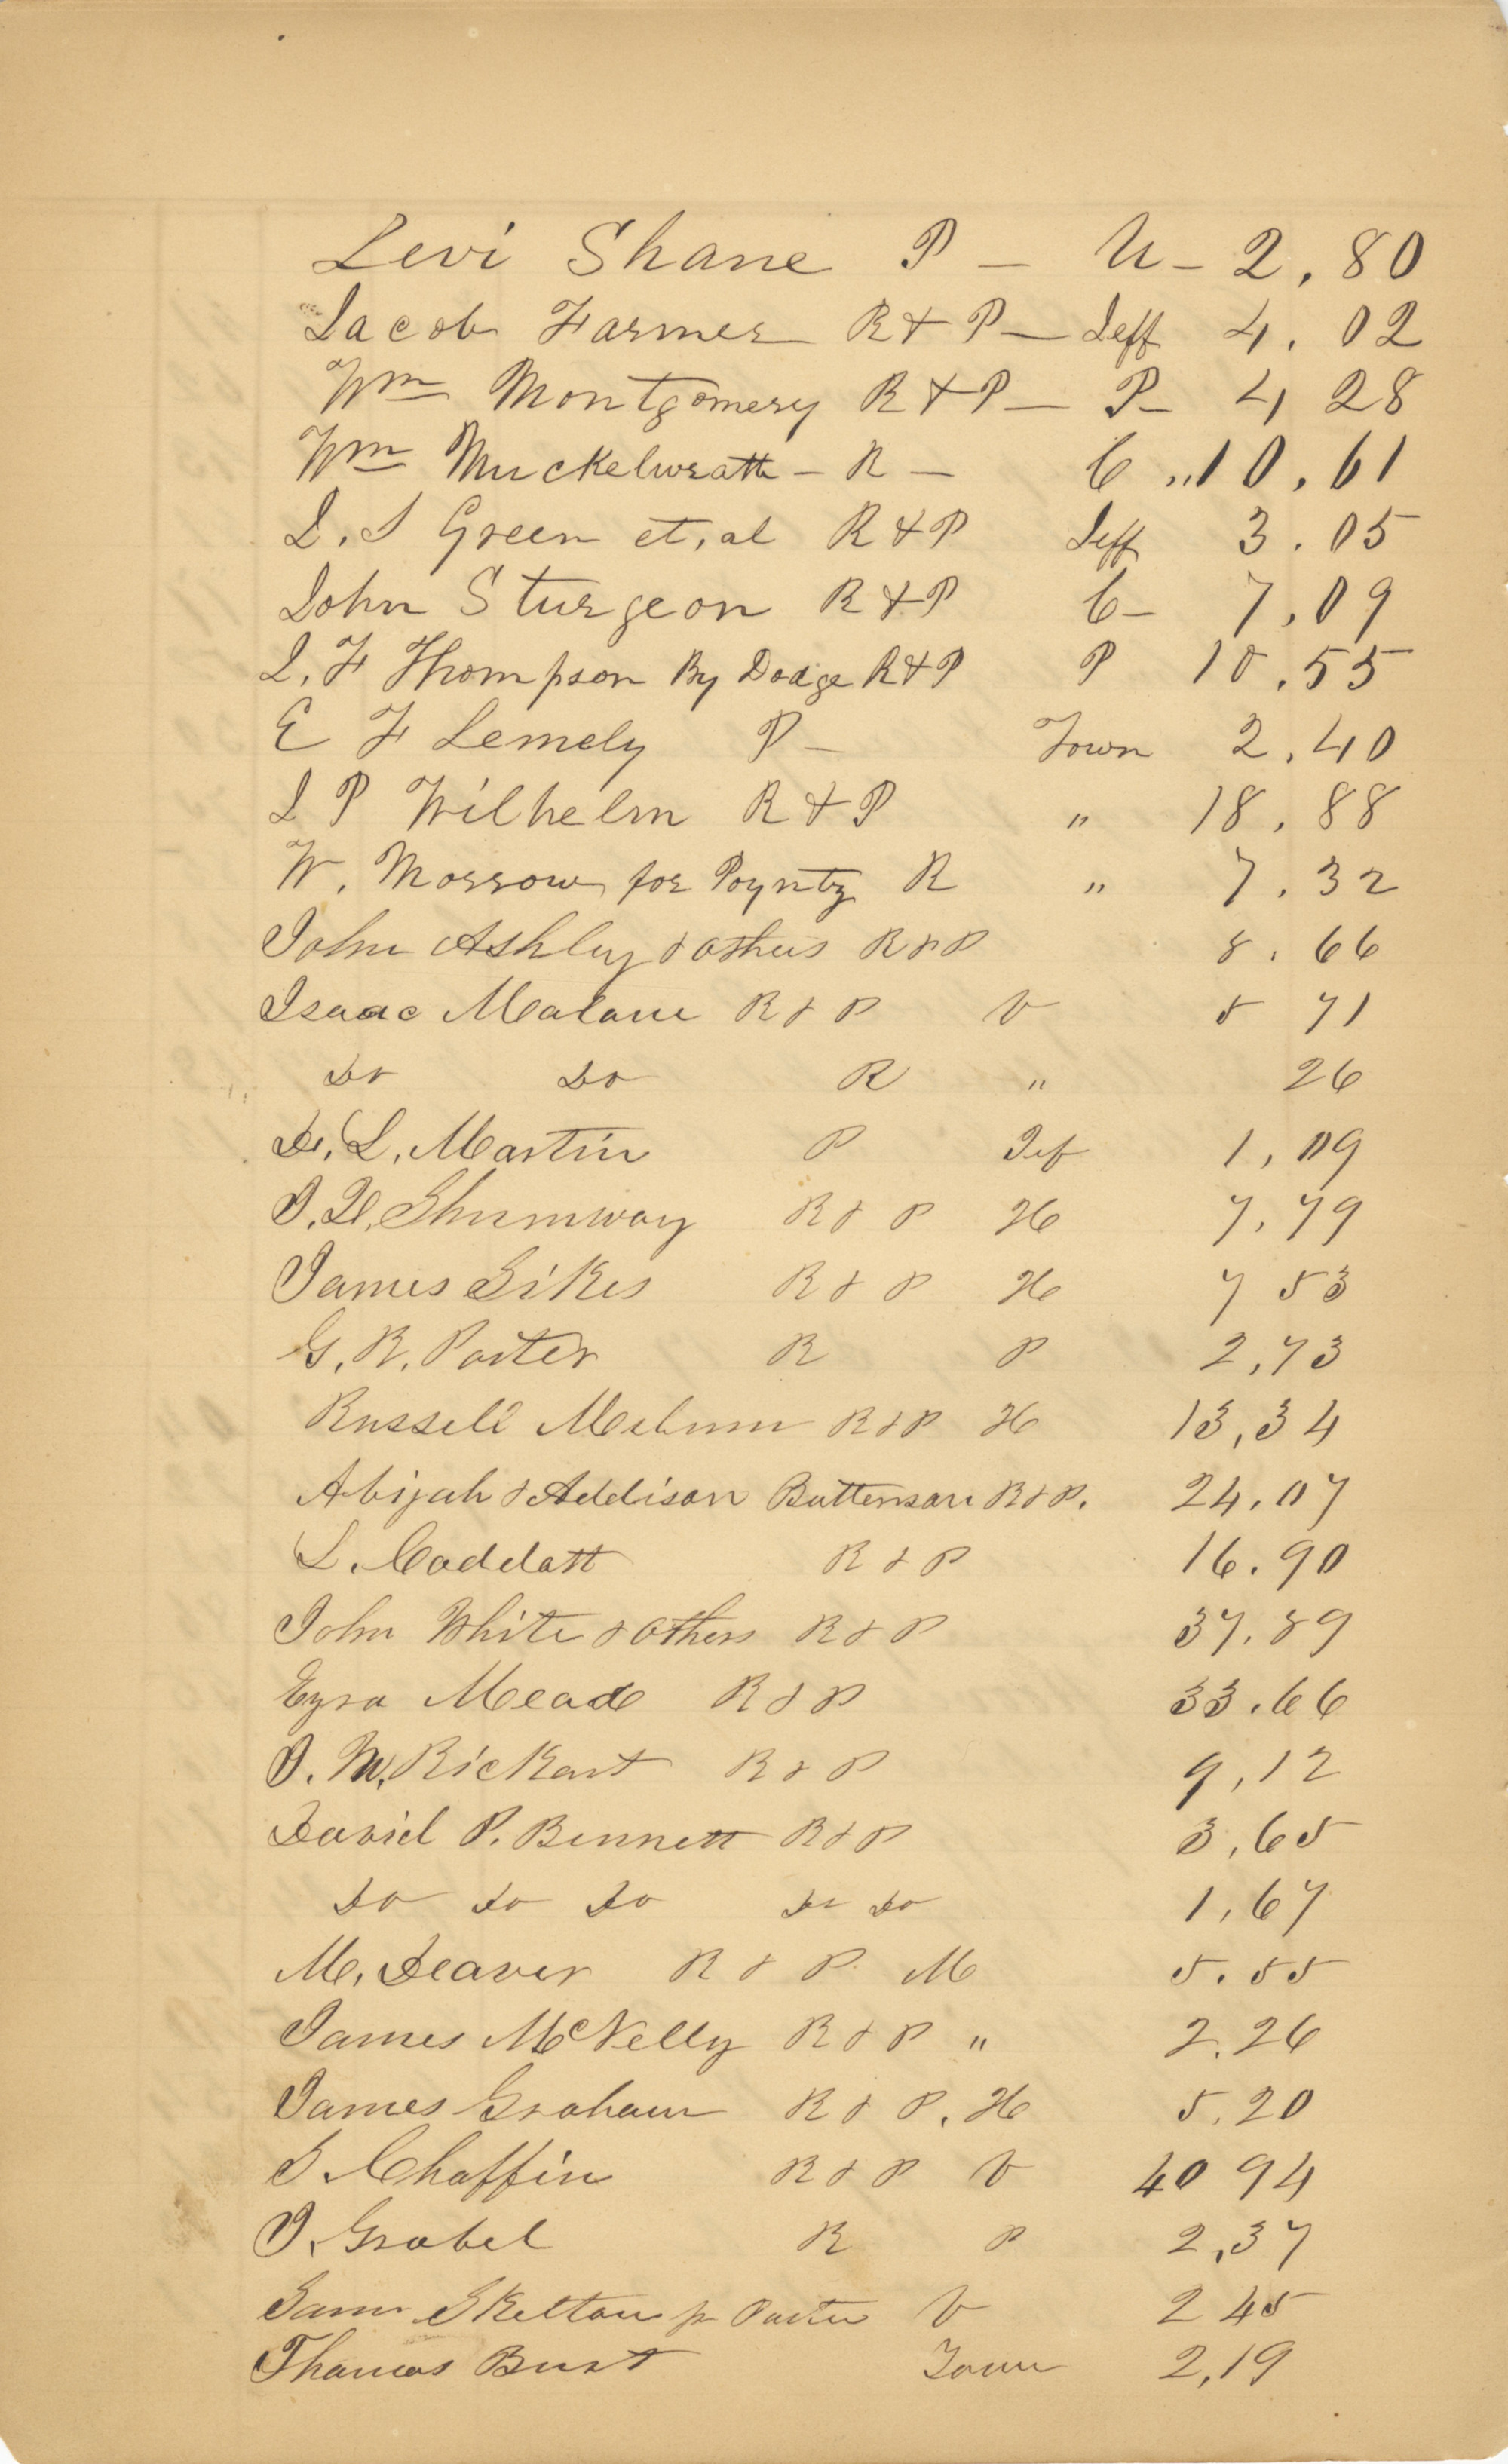 Levi Shane P — U — 2.80
Jacob Farmer R & P — Jeff 4.02
Wm Montgomery R & P — P — 4 28
Wm Muckelwrath — R — C „ 10.61
J. S Green et, al R & P Jeff 3.05
John Sturgeon R & P C — 7.09
J. F Thompson By Dodge R & P P 10.55
E F Lemely P — Town 2.40
J P Wilhelm R & P " 18.88
W. Morrow for Poyntz R " 7.32
John Ashley & others R & P 8.66
Isaac Malane R & P V 5 71
Do Do R " 26
Dr. L. Martin P Jef 1,09
J. H. Shumway R & P H 7,79
James Sikes R & P H 7 53
G. R. Porter R P 2,73
Russell Milum R & P H 13,34
Abijah & Addison Battenson R & P. 24.07
L. Coddatt R & P 16.90
John White & others R & P 37.89
Ezra Meade R & P 33.66
J. M. Rickart R & P 9,12
David P. Bennett R & P 3,65
Do Do Do Do Do 1,67
M. Deaver R & P. M 5.55
James McNelly R & P " 2.26
James Graham R & P. H 5.20
S. Chaffin R & P V 40 94
J. Grabel R P 2,37
Sam Skelton pr Porter V 2 45
Thomas Burt Town 2,19